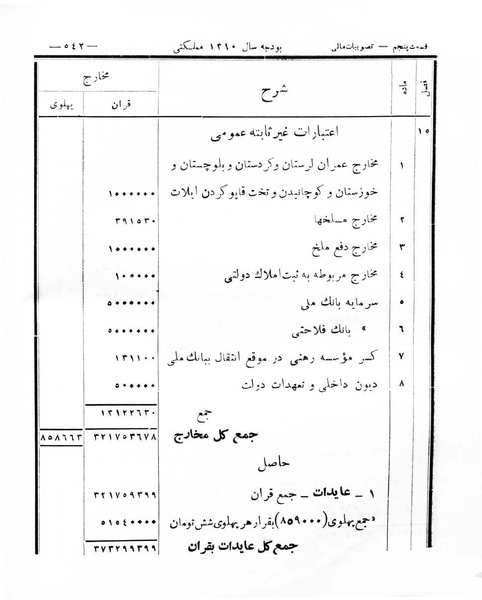 قسمت پنجم — تصویبات مالی بودجه سال ۱۳۱۰ مملکتی —۵۴۲—
فصل ماده شرح مخارج
قران پهلوی
۱۵ اعتبارات غیر ثابته عمومی
۱ مخارج عمران لرستان و کردستان و بلوچستان و
خوزستان و کوچانیدن و تخت قاپو کردن ایلات ۱۰۰۰۰۰۰
۲ مخارج مسلخها ۳۹۱۵۳۰
۳ مخارج دفع ملخ ۱۰۰۰۰۰۰
۴ مخارج مربوطه به ثبت املاک دولتی ۱۰۰۰۰۰
۵ سرمایه بانک ملی ۵۰۰۰۰۰۰
۶ » بانک فلاحتی ۵۰۰۰۰۰۰
۷ کسر مؤسسه رهنی در موقع انتقال ببانک ملی ۱۳۱۱۰۰
۸ دیون داخلی و تعهدات دولت ۵۰۰۰۰۰
جمع ۱۳۱۲۲۶۳۰
جمع کل مخارج ۳۲۱۷۵۳۶۷۸ ۸۵۸۶۶۳
حاصل
۱ – عایدات – جمع قران ۳۲۱۷۵۹۳۹۹
«جمع پهلوی (۸۵۹۰۰۰) بقرار هر پهلوی شش تومان ۵۱۵۴۰۰۰۰
جمع کل عایدات بقران ۳۷۳۲۹۹۳۹۹